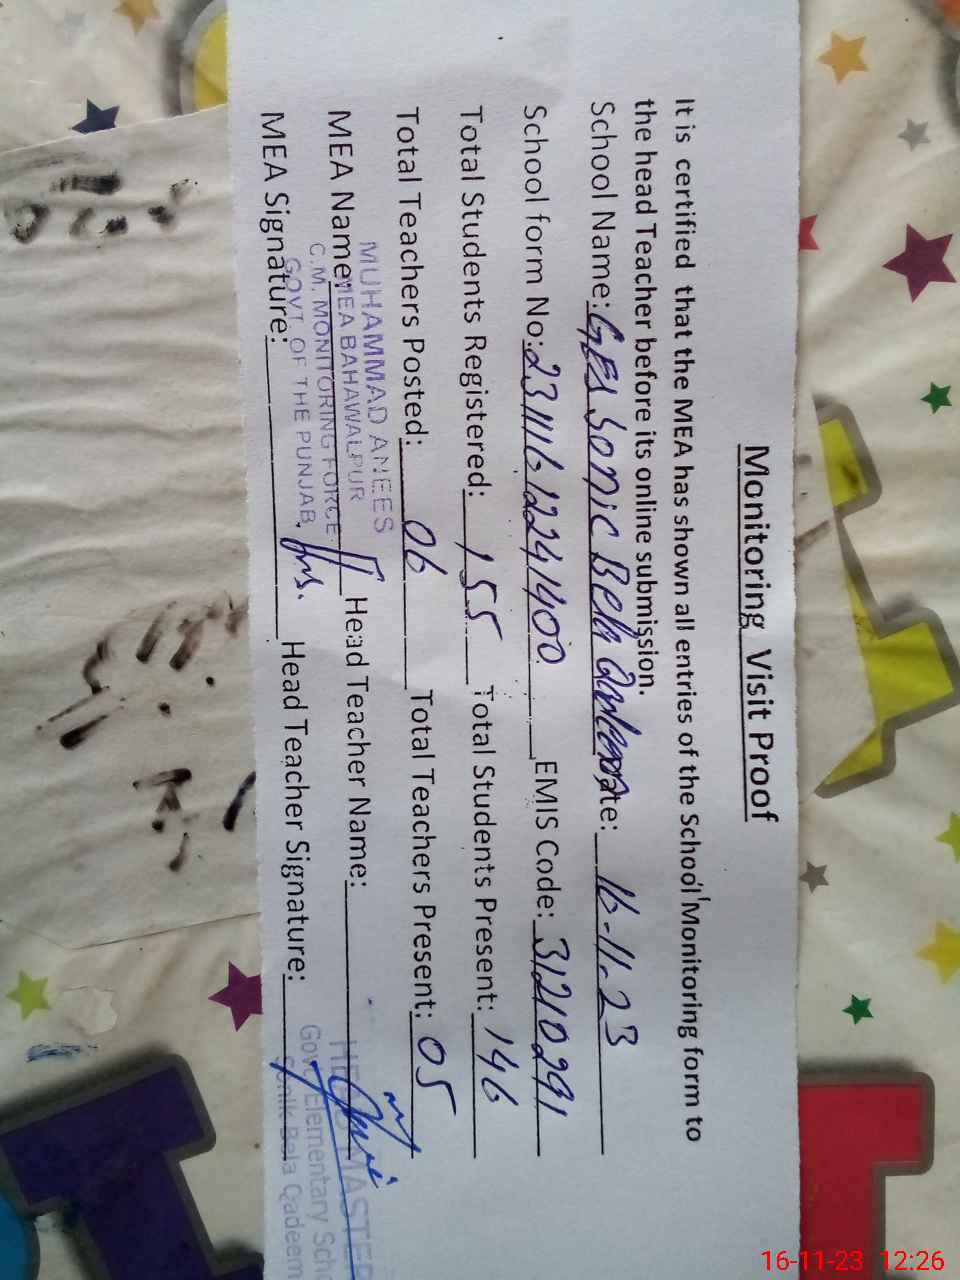 Monitoring Visit Proof
It is certified that the MEA has shown all entries of the School Monitoring form to
the head Teacher before its online submission.
School Name: GES Sonic Bela Date: 16-11-23
School form No: EMIS Code: 31210291
Total Students Registered: 155 Total Students Present: 146
Total Teachers Posted: 06 Total Teachers Present: 05
MUHAMMAD ANEES
MEA Name: Head Teacher Name:
MEA BAHAWALPUR
C.M. MONITORING FORCE
GOVT. OF THE PUNJAB.
MEA Signature: Head Teacher Signature:
HEAD MASTER
Govt. Elementary Scho
Sonik Bela Qadeem
16-11-23 12:26